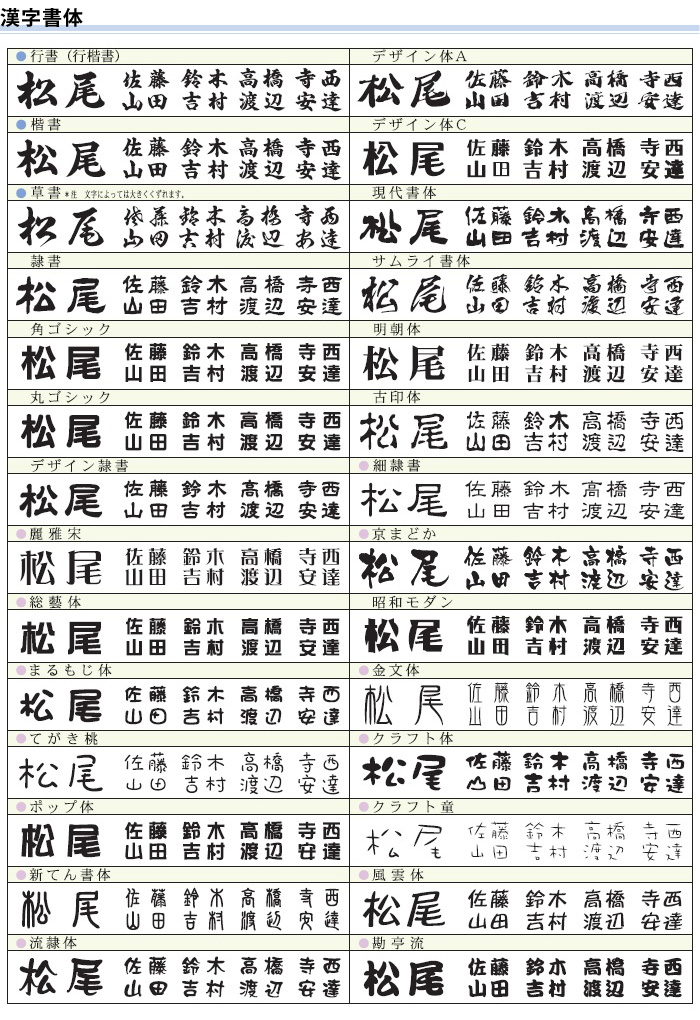 漢字書体
●行書（行楷書）
松尾 佐藤 鈴木 高橋 寺西
山田 吉村 渡辺 安達
デザイン体A
松尾 佐藤 鈴木 高橋 寺西
山田 吉村 渡辺 安達
●楷書
松尾 佐藤 鈴木 高橋 寺西
山田 吉村 渡辺 安達
デザイン体C
松尾 佐藤 鈴木 高橋 寺西
山田 吉村 渡辺 安達
●草書 *注 文字によっては大きくくずれます。
松尾 佐藤 鈴木 高橋 寺西
山田 吉村 渡辺 安達
現代書体
松尾 佐藤 鈴木 高橋 寺西
山田 吉村 渡辺 安達
隷書
松尾 佐藤 鈴木 高橋 寺西
山田 吉村 渡辺 安達
サムライ書体
松尾 佐藤 鈴木 高橋 寺西
山田 吉村 渡辺 安達
角ゴシック
松尾 佐藤 鈴木 高橋 寺西
山田 吉村 渡辺 安達
明朝体
松尾 佐藤 鈴木 高橋 寺西
山田 吉村 渡辺 安達
丸ゴシック
松尾 佐藤 鈴木 高橋 寺西
山田 吉村 渡辺 安達
古印体
松尾 佐藤 鈴木 高橋 寺西
山田 吉村 渡辺 安達
デザイン隷書
松尾 佐藤 鈴木 高橋 寺西
山田 吉村 渡辺 安達
●細隷書
松尾 佐藤 鈴木 高橋 寺西
山田 吉村 渡辺 安達
●麗雅宋
松尾 佐藤 鈴木 高橋 寺西
山田 吉村 渡辺 安達
●京まどか
松尾 佐藤 鈴木 高橋 寺西
山田 吉村 渡辺 安達
●総藝体
松尾 佐藤 鈴木 高橋 寺西
山田 吉村 渡辺 安達
昭和モダン
松尾 佐藤 鈴木 高橋 寺西
山田 吉村 渡辺 安達
●まるもじ体
松尾 佐藤 鈴木 高橋 寺西
山田 吉村 渡辺 安達
●金文体
松尾 佐藤 鈴木 高橋 寺西
山田 吉村 渡辺 安達
●てがき桃
松尾 佐藤 鈴木 高橋 寺西
山田 吉村 渡辺 安達
●クラフト体
松尾 佐藤 鈴木 高橋 寺西
山田 吉村 渡辺 安達
●ポップ体
松尾 佐藤 鈴木 高橋 寺西
山田 吉村 渡辺 安達
●クラフト童
松尾 佐藤 鈴木 高橋 寺西
山田 吉村 渡辺 安達
●新てん書体
松尾 佐藤 鈴木 高橋 寺西
山田 吉村 渡辺 安達
●風雲体
松尾 佐藤 鈴木 高橋 寺西
山田 吉村 渡辺 安達
●流隷体
松尾 佐藤 鈴木 高橋 寺西
山田 吉村 渡辺 安達
●勘亭流
松尾 佐藤 鈴木 高橋 寺西
山田 吉村 渡辺 安達